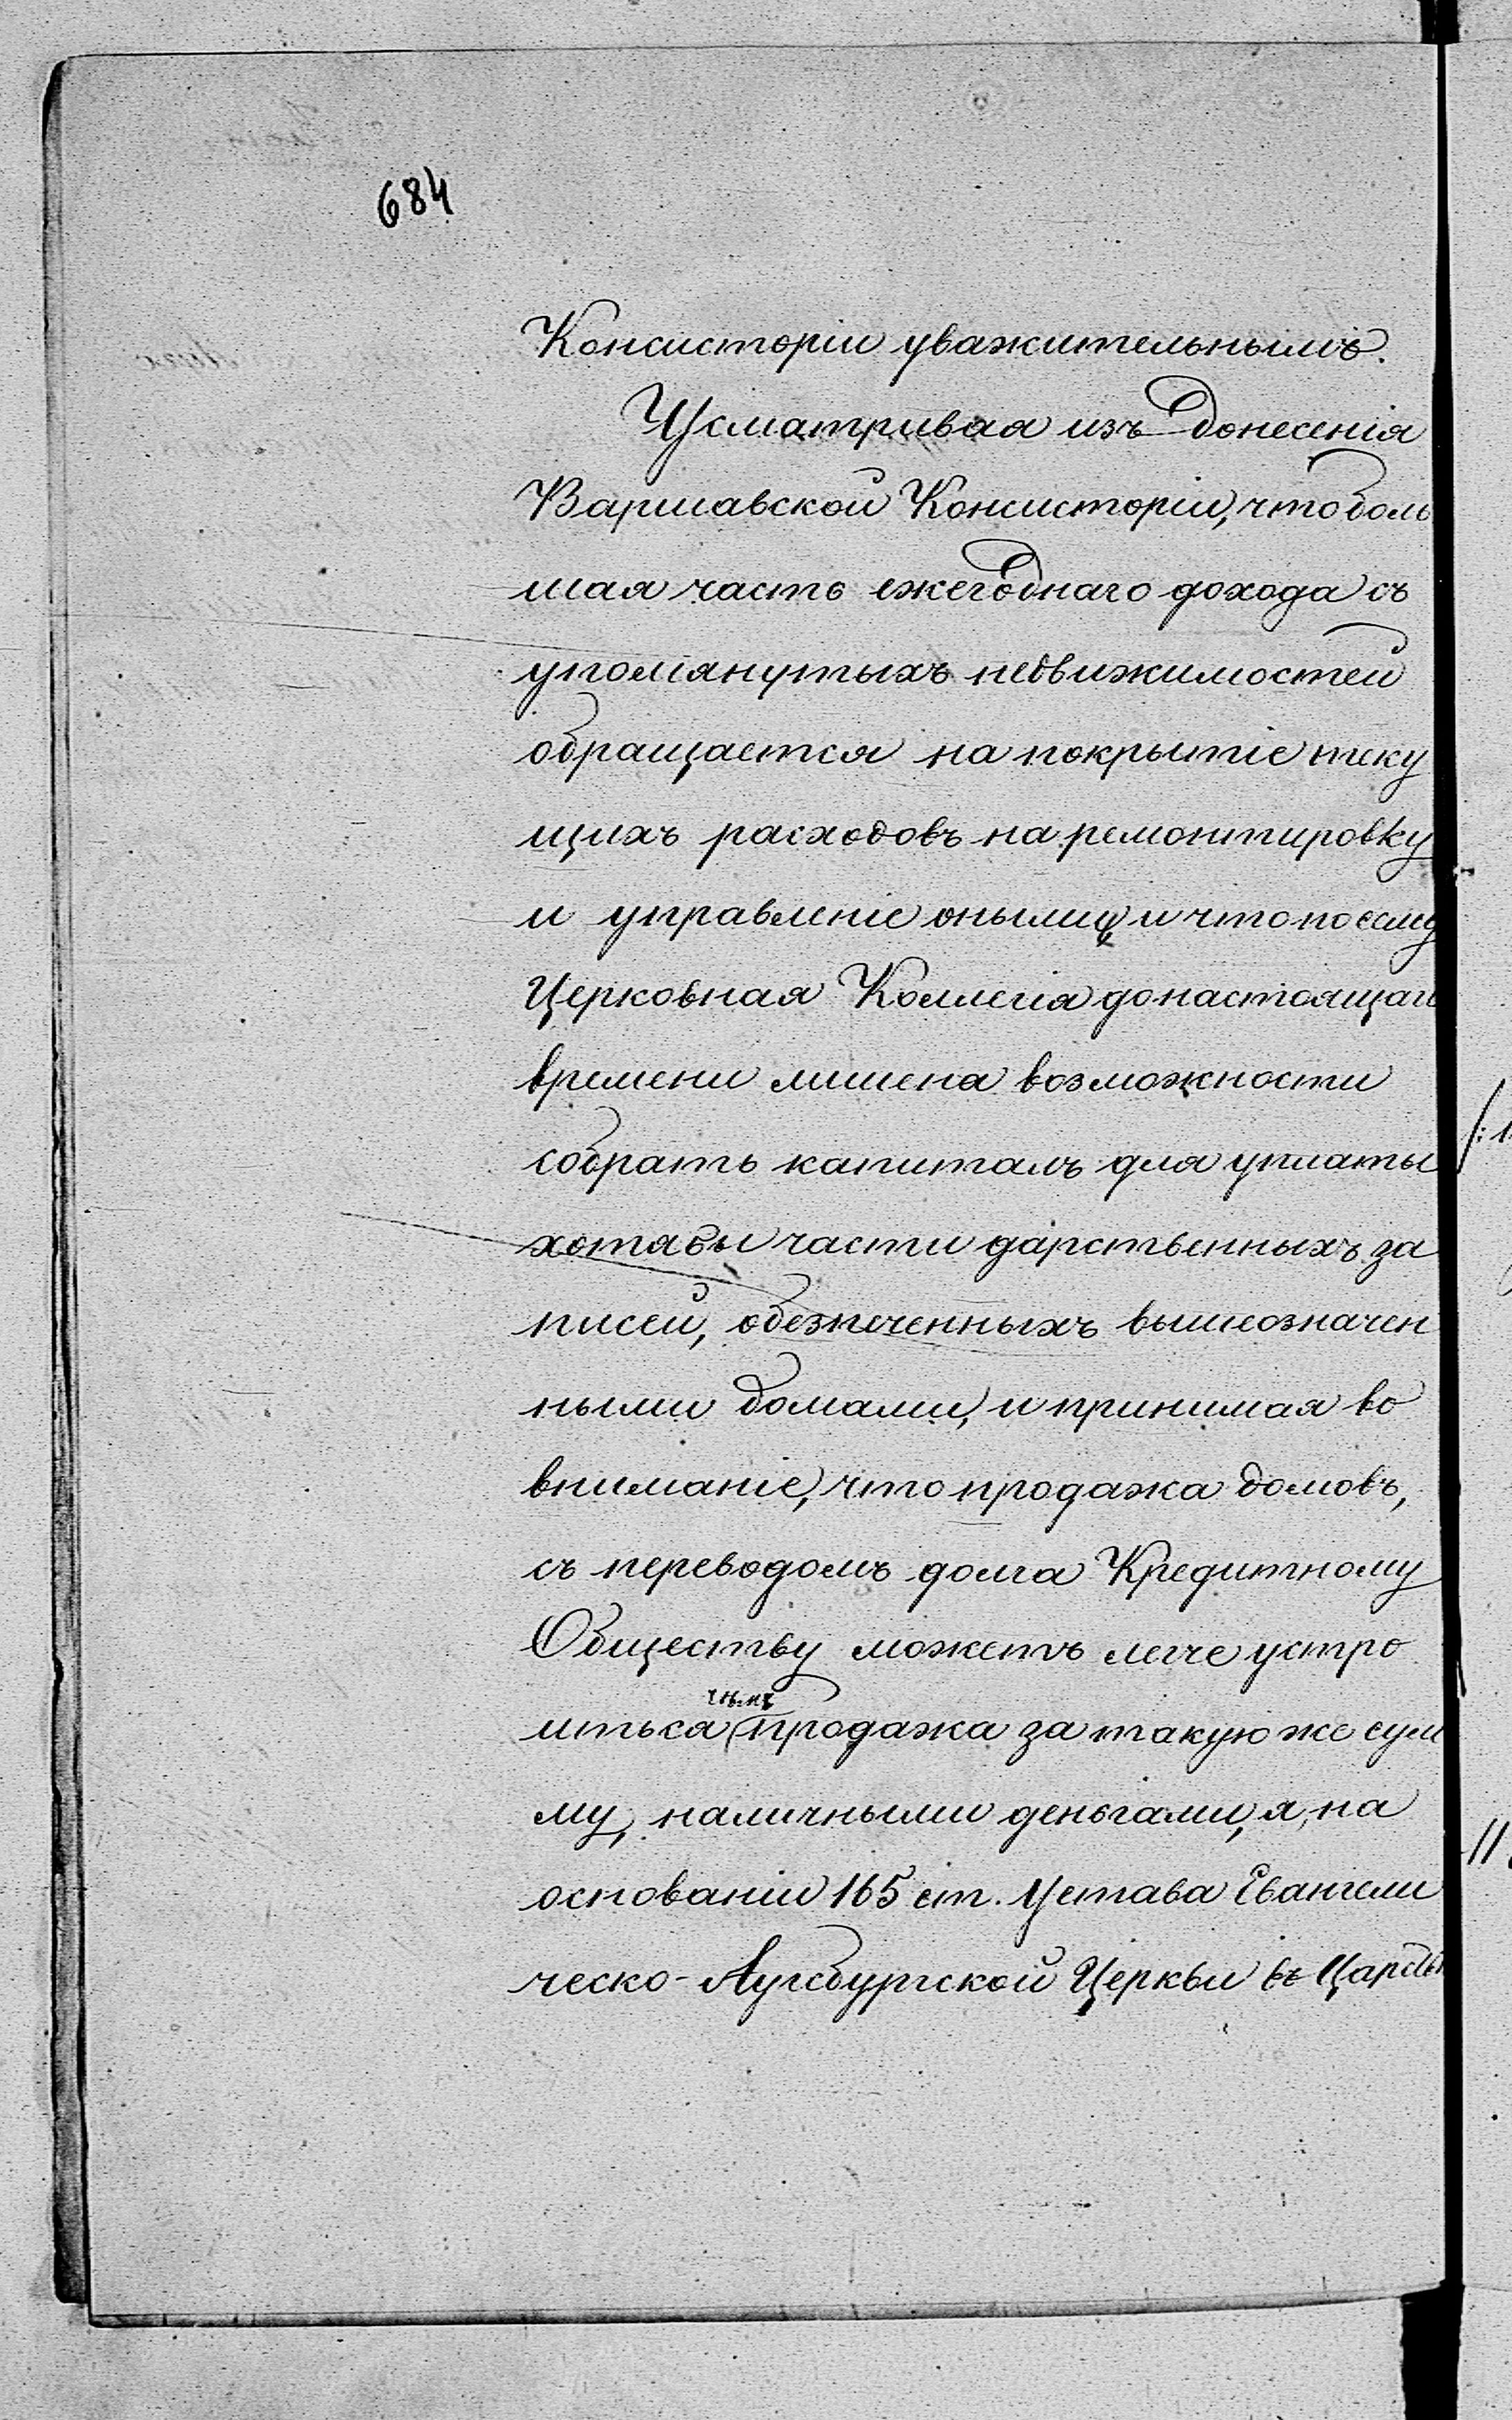 684
Консисторіи уважительнымъ.
Усматривая изъ донесенія
Варшавской Консисторіи, что боль
шая часть ежегоднаго дохода съ
упомянутыхъ недвижимостей
обращается на покрытіе теку
щихъ расходовъ на ремонтировку
и управленіе оными, и что по сему
Церковная Коллегія до настоящаго
времени лишена возможности
собрать капиталъ для уплаты
хотя бы части дарственныхъ за
писей, обезпеченныхъ вышеозначен
ными домами, и принимая во
вниманіе, что продажа домовъ,
съ переводомъ долга Кредитному
Обществу можетъ легче устро
чѣмъ
иться продажа за такую же сум
му, наличными деньгами, я, на
основаніи 165 ст. Устава Евангели
ческо-Аугсбургской Церкви въ Царств